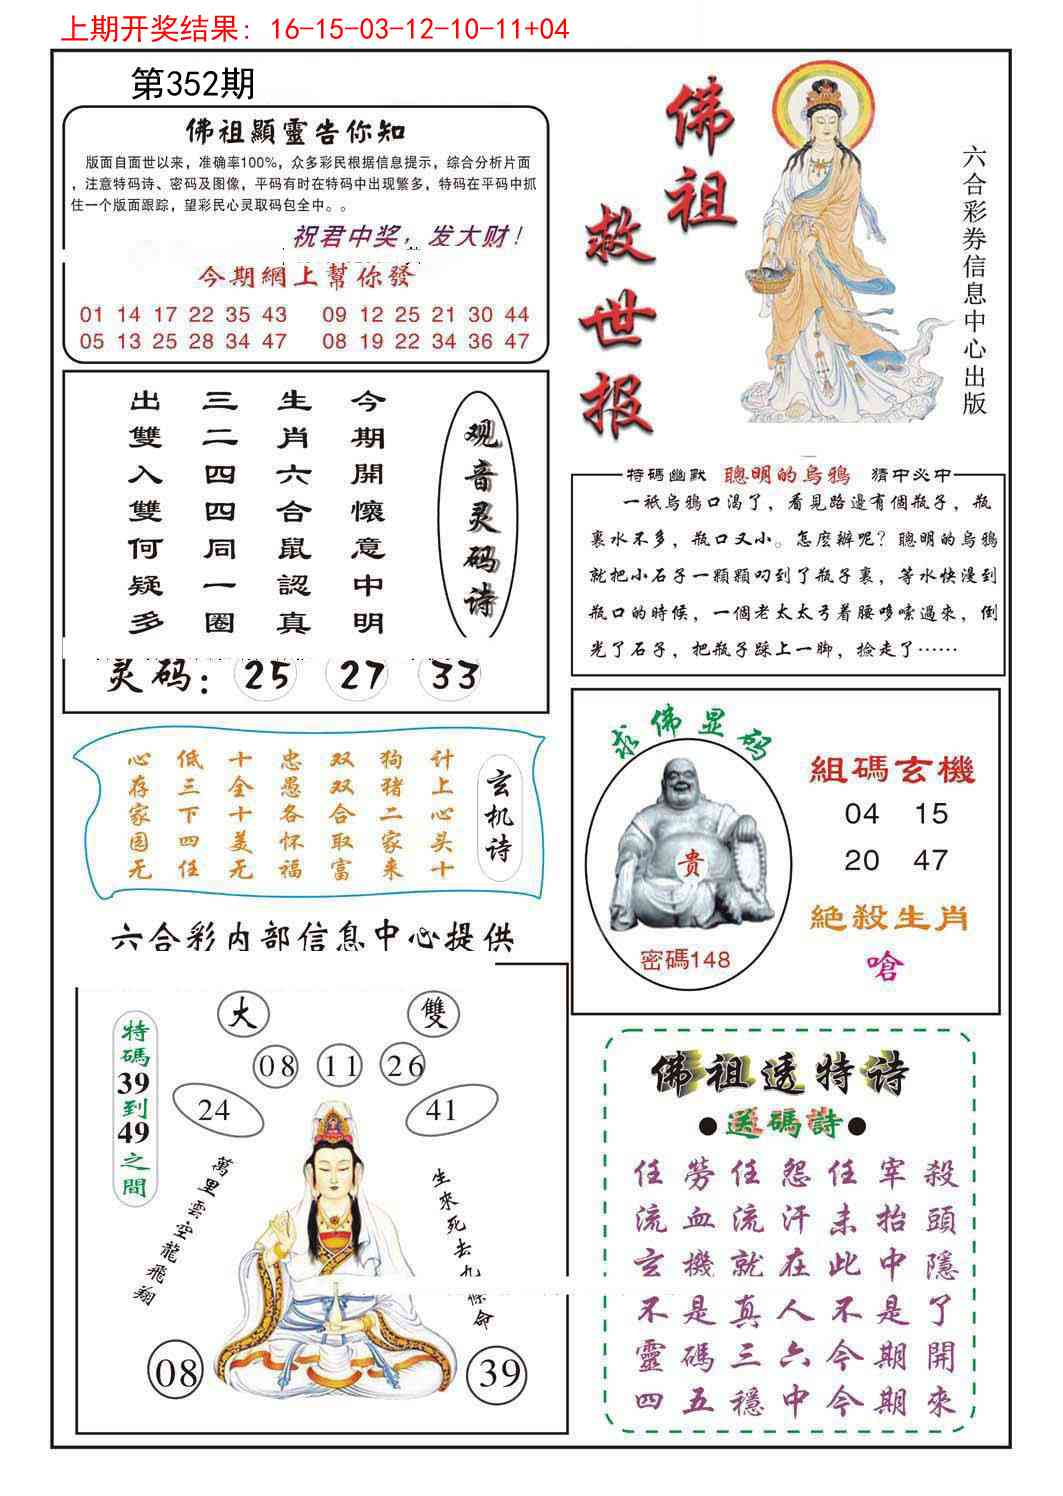 上期开奖结果: 16-15-03-12-10-11+04
第352期
佛祖顯靈告你知
版面自面世以来，准确率100%，众多彩民根据信息提示，综合分析片面
，注意特码诗、密码及图像，平码有时在特码中出现繁多，特码在平码中抓
住一个版面跟踪，望彩民心灵取码包全中。。
祝君中奖，发大财！
今期網上幫你發
01 14 17 22 35 43 09 12 25 21 30 44
05 13 25 28 34 47 08 19 22 34 36 47
佛祖
救世报
六合彩券信息中心出版
观音灵码诗
今期開懷意中明
生肖六合鼠認真
三二四四同一圈
出雙入雙何疑多
灵码：25 27 33
特碼幽默 聰明的烏鴉 猜中必中
一衹烏鴉口渴了，看見路邊有個瓶子，瓶
裏水不多，瓶口又小。怎麼辦呢？聰明的烏鴉
就把小石子一顆顆叼到了瓶子裏，等水快漫到
瓶口的時候，一個老太太弓着腰哆嗦過來，倒
光了石子，把瓶子踩上一脚，撿走了……
玄机诗
计上心头十
狗猪二家来
双双合取富
忠愚各怀福
十全十美无
低三下四任
心存家园无
六合彩内部信息中心提供
求佛显码
贵
密碼148
組碼玄機
04 15
20 47
絕殺生肖
嗆
特碼39到49之間
大 雙
08 11 26
24 41
萬里雲空龍飛翔
生來死去九條命
08 39
佛祖透特诗
●送碼詩●
任勞任怨任宰殺
流血流汗未抬頭
玄機就在此中隱
不是真人不是了
靈碼三六今期開
四五穩中今期來